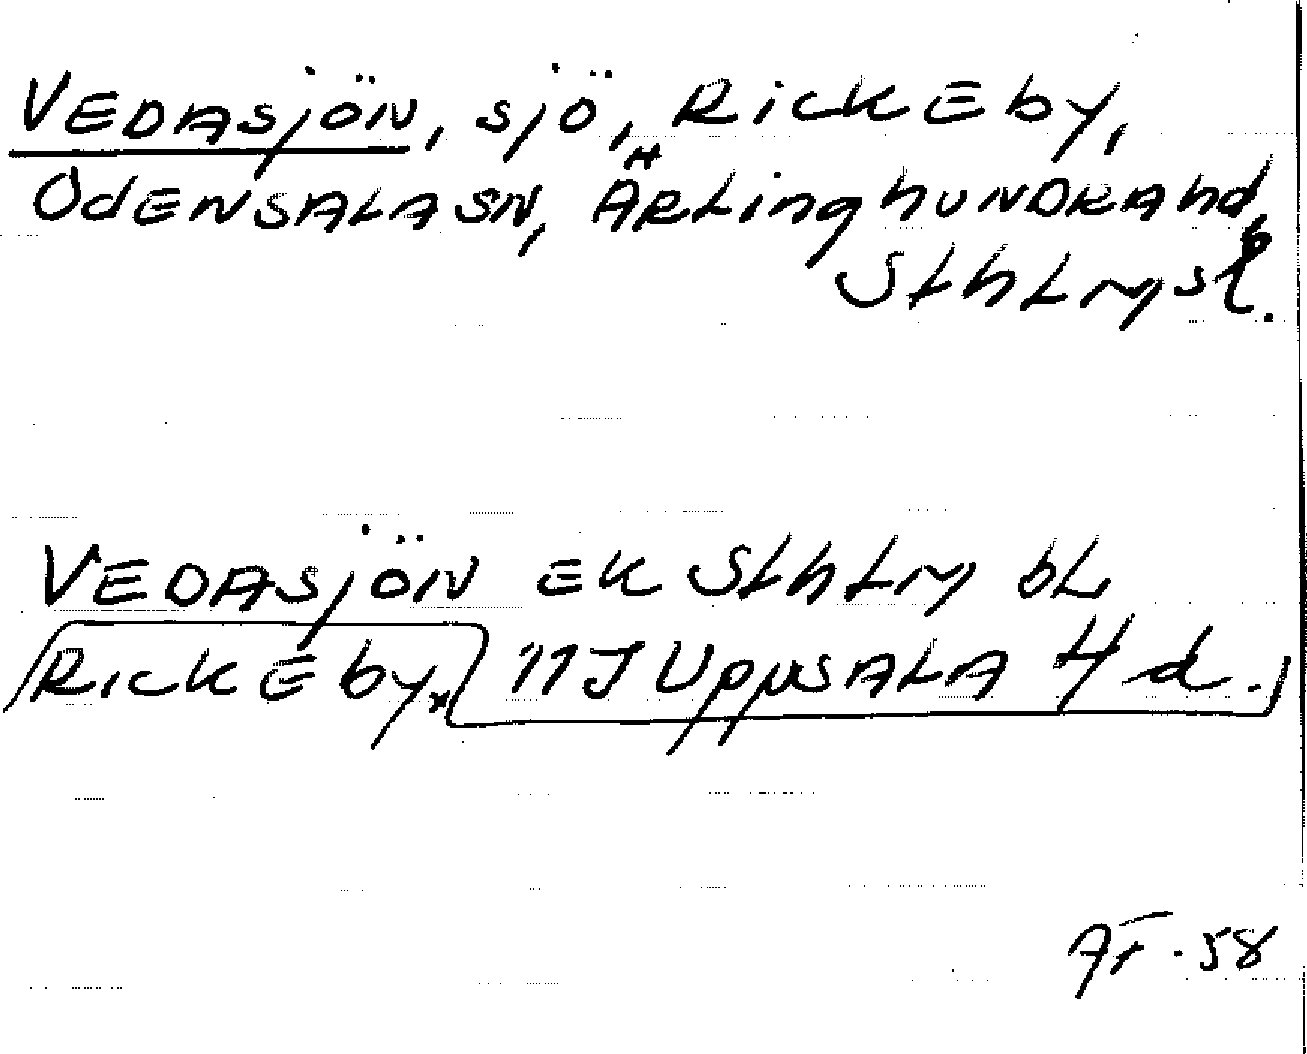 VEDASJÖN, sjö, Rickeby,
Odensala sn, Ärlinghundra hd,
Sthlms l.
VEDASJÖN EK Sthlm bl
Rickeby, 11J Uppsala 4 d.
AF -58